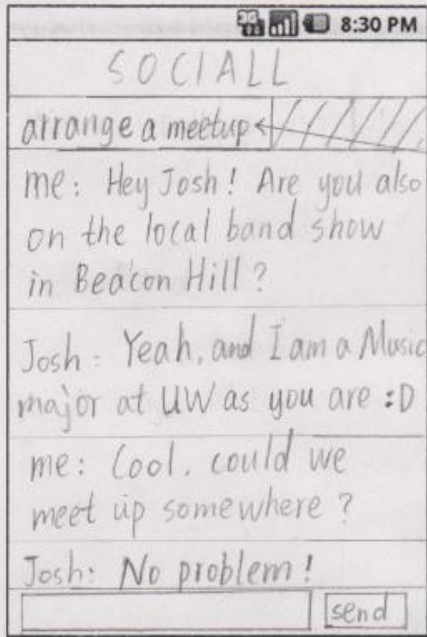 3G 8:30 PM
SOCIALL
arrange a meetup
me: Hey Josh! Are you also
on the local band show
in Beacon Hill?
Josh: Yeah, and I am a Music
major at UW as you are :D
me: Cool. could we
meet up somewhere?
Josh: No problem!
send